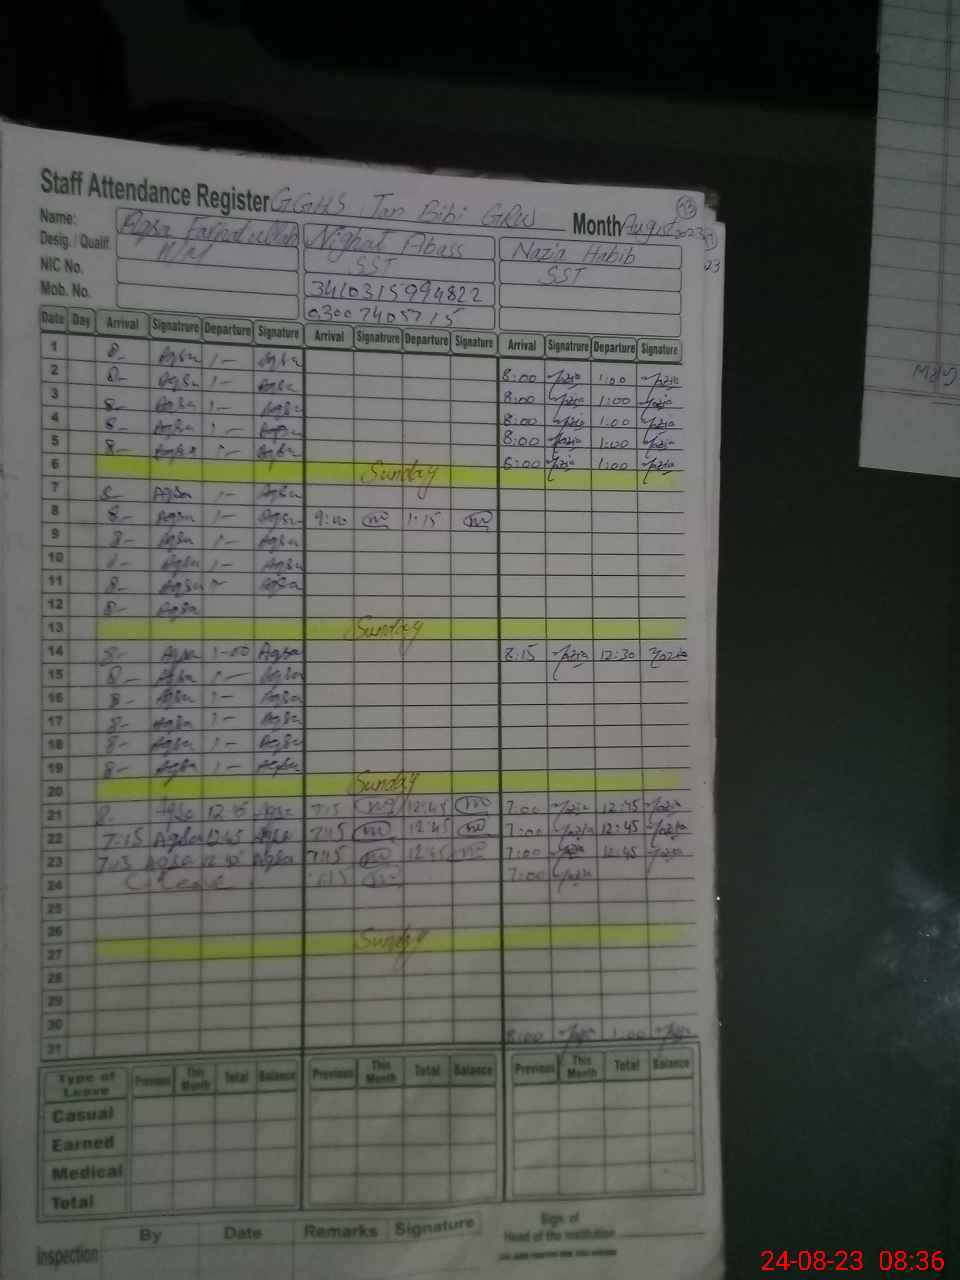 Staff Attendance Register GGHS Jan Bibi GRW Month August 2023
13
23
Name: Aqsa Nighat Abass Nazia Habib
Desig. / Qualif. H/M SST SST
NIC No. 3410315994822
Mob. No. 03007405715
Date Day Arrival Signatrure Departure Signature Arrival Signatrure Departure Signature Arrival Signatrure Departure Signature
1 8- Aqsa 1- Aqsa 8:00 Nazia 1:00 Nazia
2 8- Aqsa 1- Aqsa 8:00 Nazia 1:00 Nazia
3 8- Aqsa 1- Aqsa 8:00 Nazia 1:00 Nazia
4 8- Aqsa 1- Aqsa 8:00 Nazia 1:00 Nazia
5 8- Aqsa 1- Aqsa 8:00 Nazia 1:00 Nazia
6 Sunday
7 8- Aqsa 1- Aqsa
8 8- Aqsa 1- Aqsa 9:00 1:15
9 8- Aqsa 1- Aqsa
10 8- Aqsa 1- Aqsa
11 8- Aqsa Aqsa
12 8- Aqsa
13 Sunday
14 8- Aqsa 1-00 Aqsa 8:15 Nazia 12:30 Nazia
15 8- Aqsa 1- Aqsa
16 8- Aqsa 1- Aqsa
17 8- Aqsa 1- Aqsa
18 8- Aqsa 1- Aqsa
19 8- Aqsa 1- Aqsa
20 Sunday
21 Aqsa 12:45 Aqsa 7:15 12:45 7:00 Nazia 12:45 Nazia
22 7:15 Aqsa 12:45 Aqsa 7:15 12:45 7:00 Nazia 12:45 Nazia
23 7:15 Aqsa 12:45 Aqsa 7:15 12:45 7:00 Nazia 12:45 Nazia
24 C/Leave 7:15 7:00 Nazia
25
26
27 Sunday
28
29
30
31 8:00 Nazia 1:00 Nazia
Type of Leave Previous This Month Total Balance Previous This Month Total Balance Previous This Month Total Balance
Casual
Earned
Medical
Total
Inspection By Date Remarks Signature Sign. of Head of the Institution
24-08-23 08:36